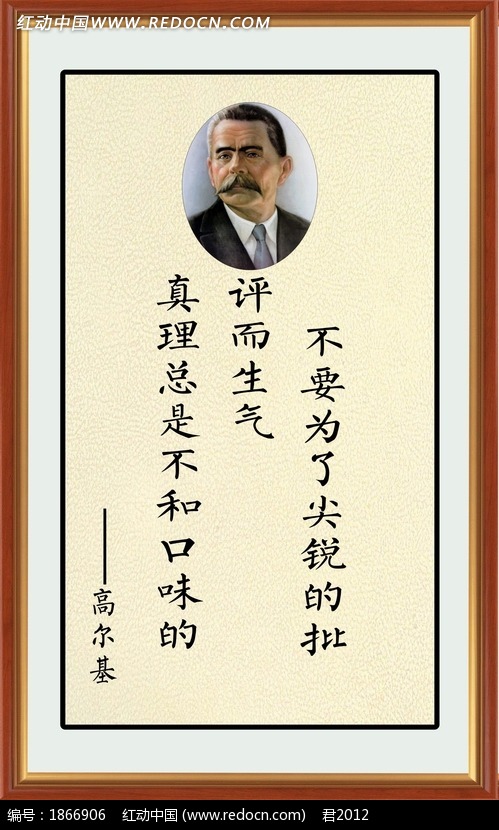 红动中国 WWW.REDOCN.COM
不要为了尖锐的批
评而生气
真理总是不和口味的
——高尔基
编号：1866906 红动中国 (www.redocn.com) 君2012